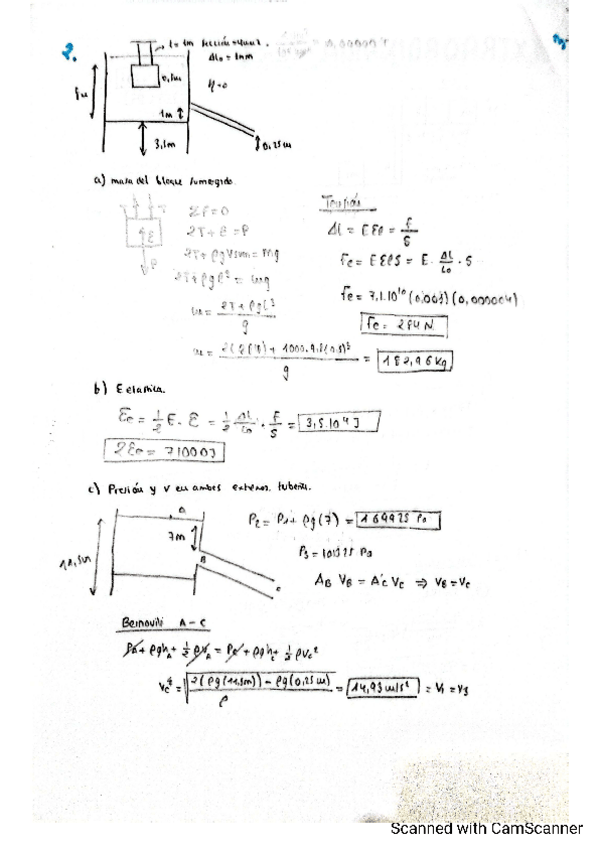 2.
l = 1m sección=4mm².
Δl₀ = 1mm
0,5m
η=0
8m
1m
3,5m
0,25m
a) masa del bloque sumergido.
ΣF=0
2T+E=P
2T+ρgVsum=mg
2T+ρgl³=mg
m = 2T+ρgl³ / g
= 182,96 Kg
Tensión
Fe = E · Δl/l₀ · S
Fe = 7,1.10¹⁰ (0,001) (0,000004)
Fe = 284 N
b) E elástica.
= 3,5.10⁴J
= 71000J
c) Presión y v en ambos extremos tubería.
7m
B
11,5m
P₂ = P₁+ ρg(7) = 169925 Pa
P₃ = 101325 Pa
A_B V_B = A_C V_C ⇒ V_B=V_C
Bernoulli A-C
P_A + ρgh_A + ½ρV_A = P_C + ρgh_C + ½ρV_C²
2(ρg(11,5m)) - ρg(0,25m) / ρ = 14,93 m/s²
Scanned with CamScanner